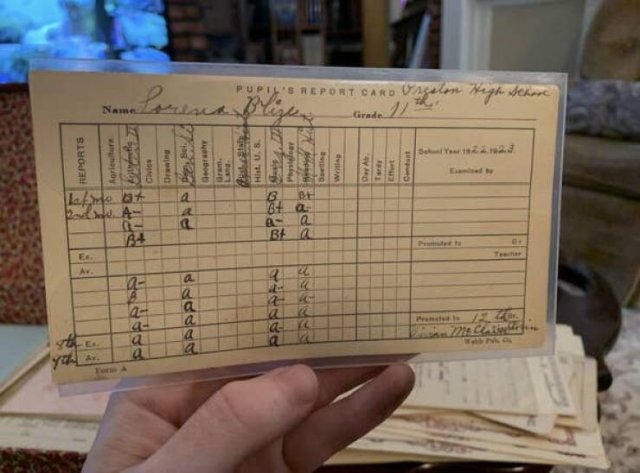 PUPIL'S REPORT CARD Preston High School
Name Lorena Grade 11th
REPORTS Agriculture Civics Drawing Dom. Sci. Geography Gram. Lang. Hist. U. S. Physiology Spelling Writing Day Ab. Tardy Effort Conduct
School Year 1922 1923
Examined by
1st mo B+ a B B+
2nd mo. A- a B+ a
a- a B- a
B+ B+ a
Promoted to Gr
Ex. Teacher
Av.
a- a a a
B a a- a
a- a a- a
a- a a- a
Promoted to 12th Gr.
8th Ex. a a a- a
Av. a a a a
Webb Pub. Co.
Form A